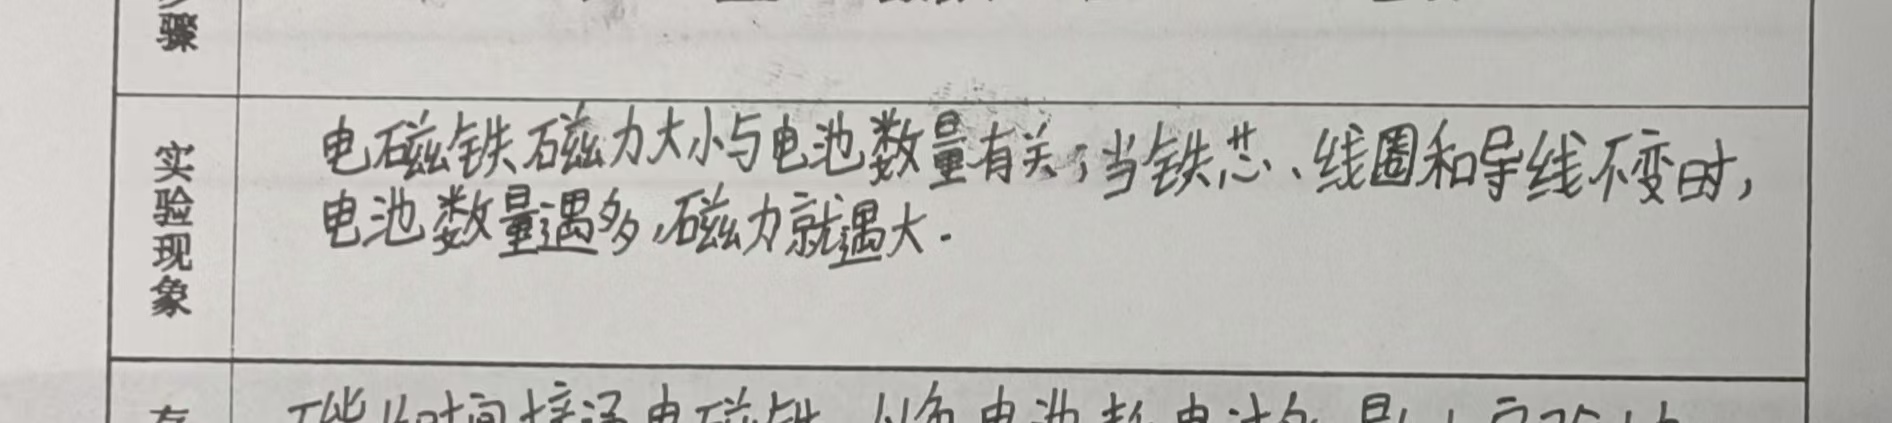 骤
实验现象
电磁铁磁力大小与电池数量有关;当铁芯、线圈和导线不变时,
电池数量遇多,磁力就遇大.